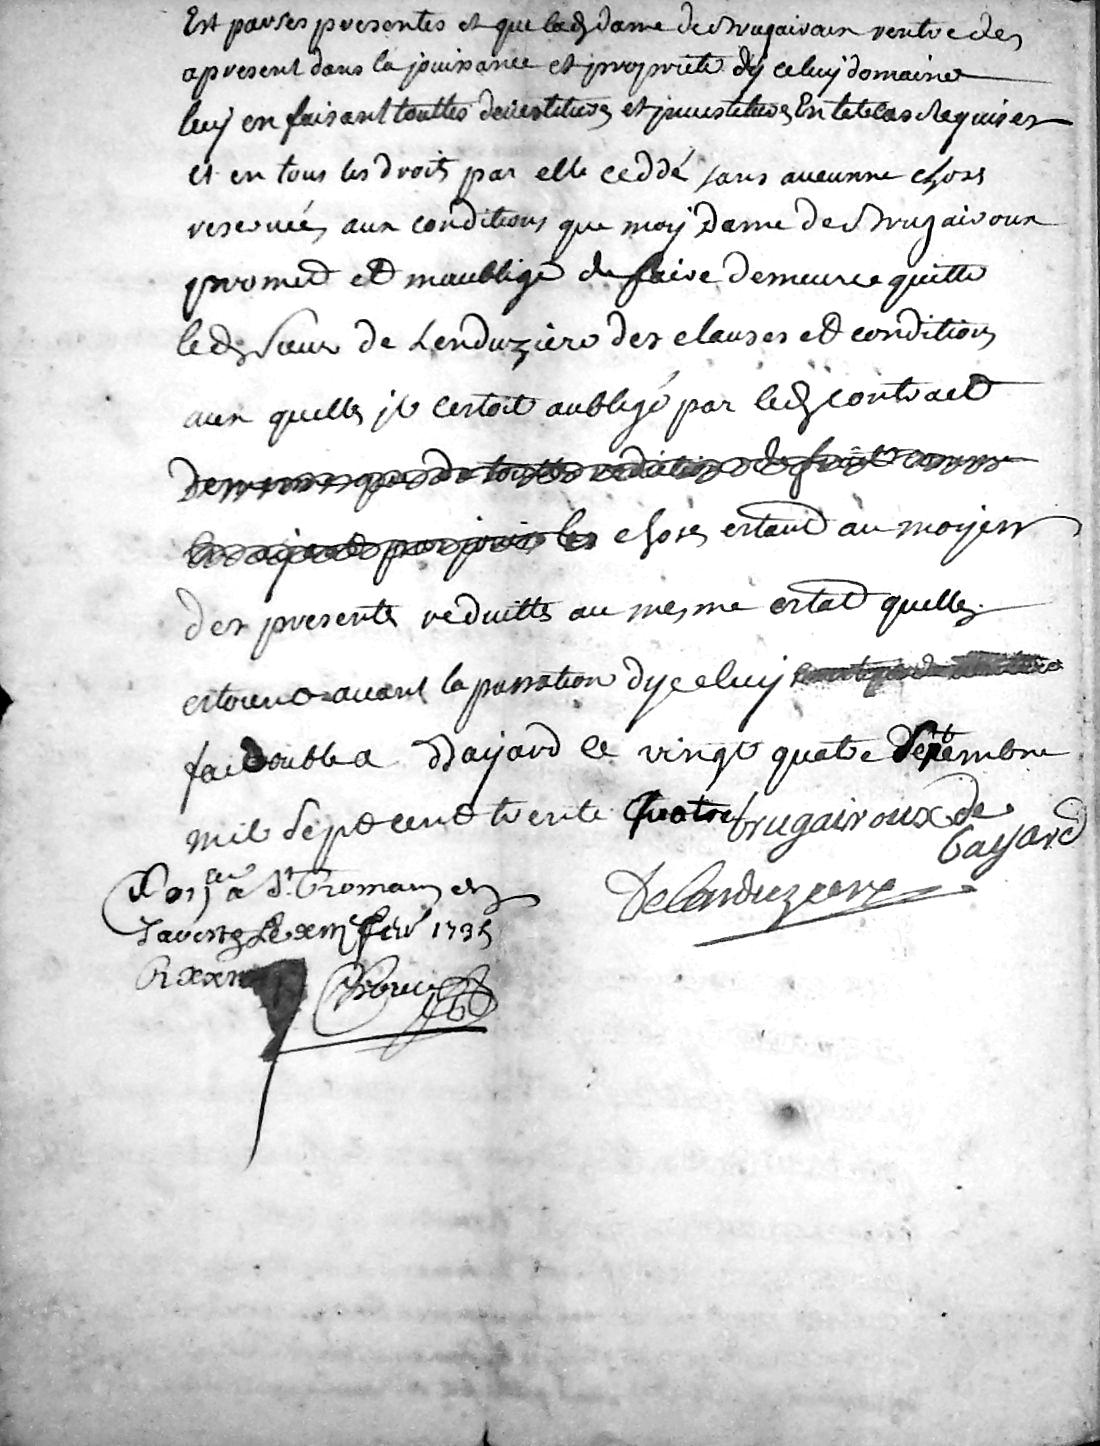 Est par ses presentes et que lad dame de Brugairoux rentre des
apresent dans la jouissance et proprieté dy celuy domaine
luy en faisant touttes devestitures et investitures En tel cas Requises
et en tous les droits par elle ceddé sans aucunne chose
reservée, aux conditions que moy Dame de Brugairoux
promet et maublige de faire demeurer quitte
led Sieur de Lenduziere des clauses et conditions
aux quelles il cestoit aubligé par led contract
choses estant au moyen
des presentes reduittes au mesme estat quelles
estoient avant la passation dyceluy
fai double a Bayard ce vingt quatre Septembre
mil sept cent trente quatre brugairoux de
bayard
Delenduziere
a St Romain
le feuv 1735